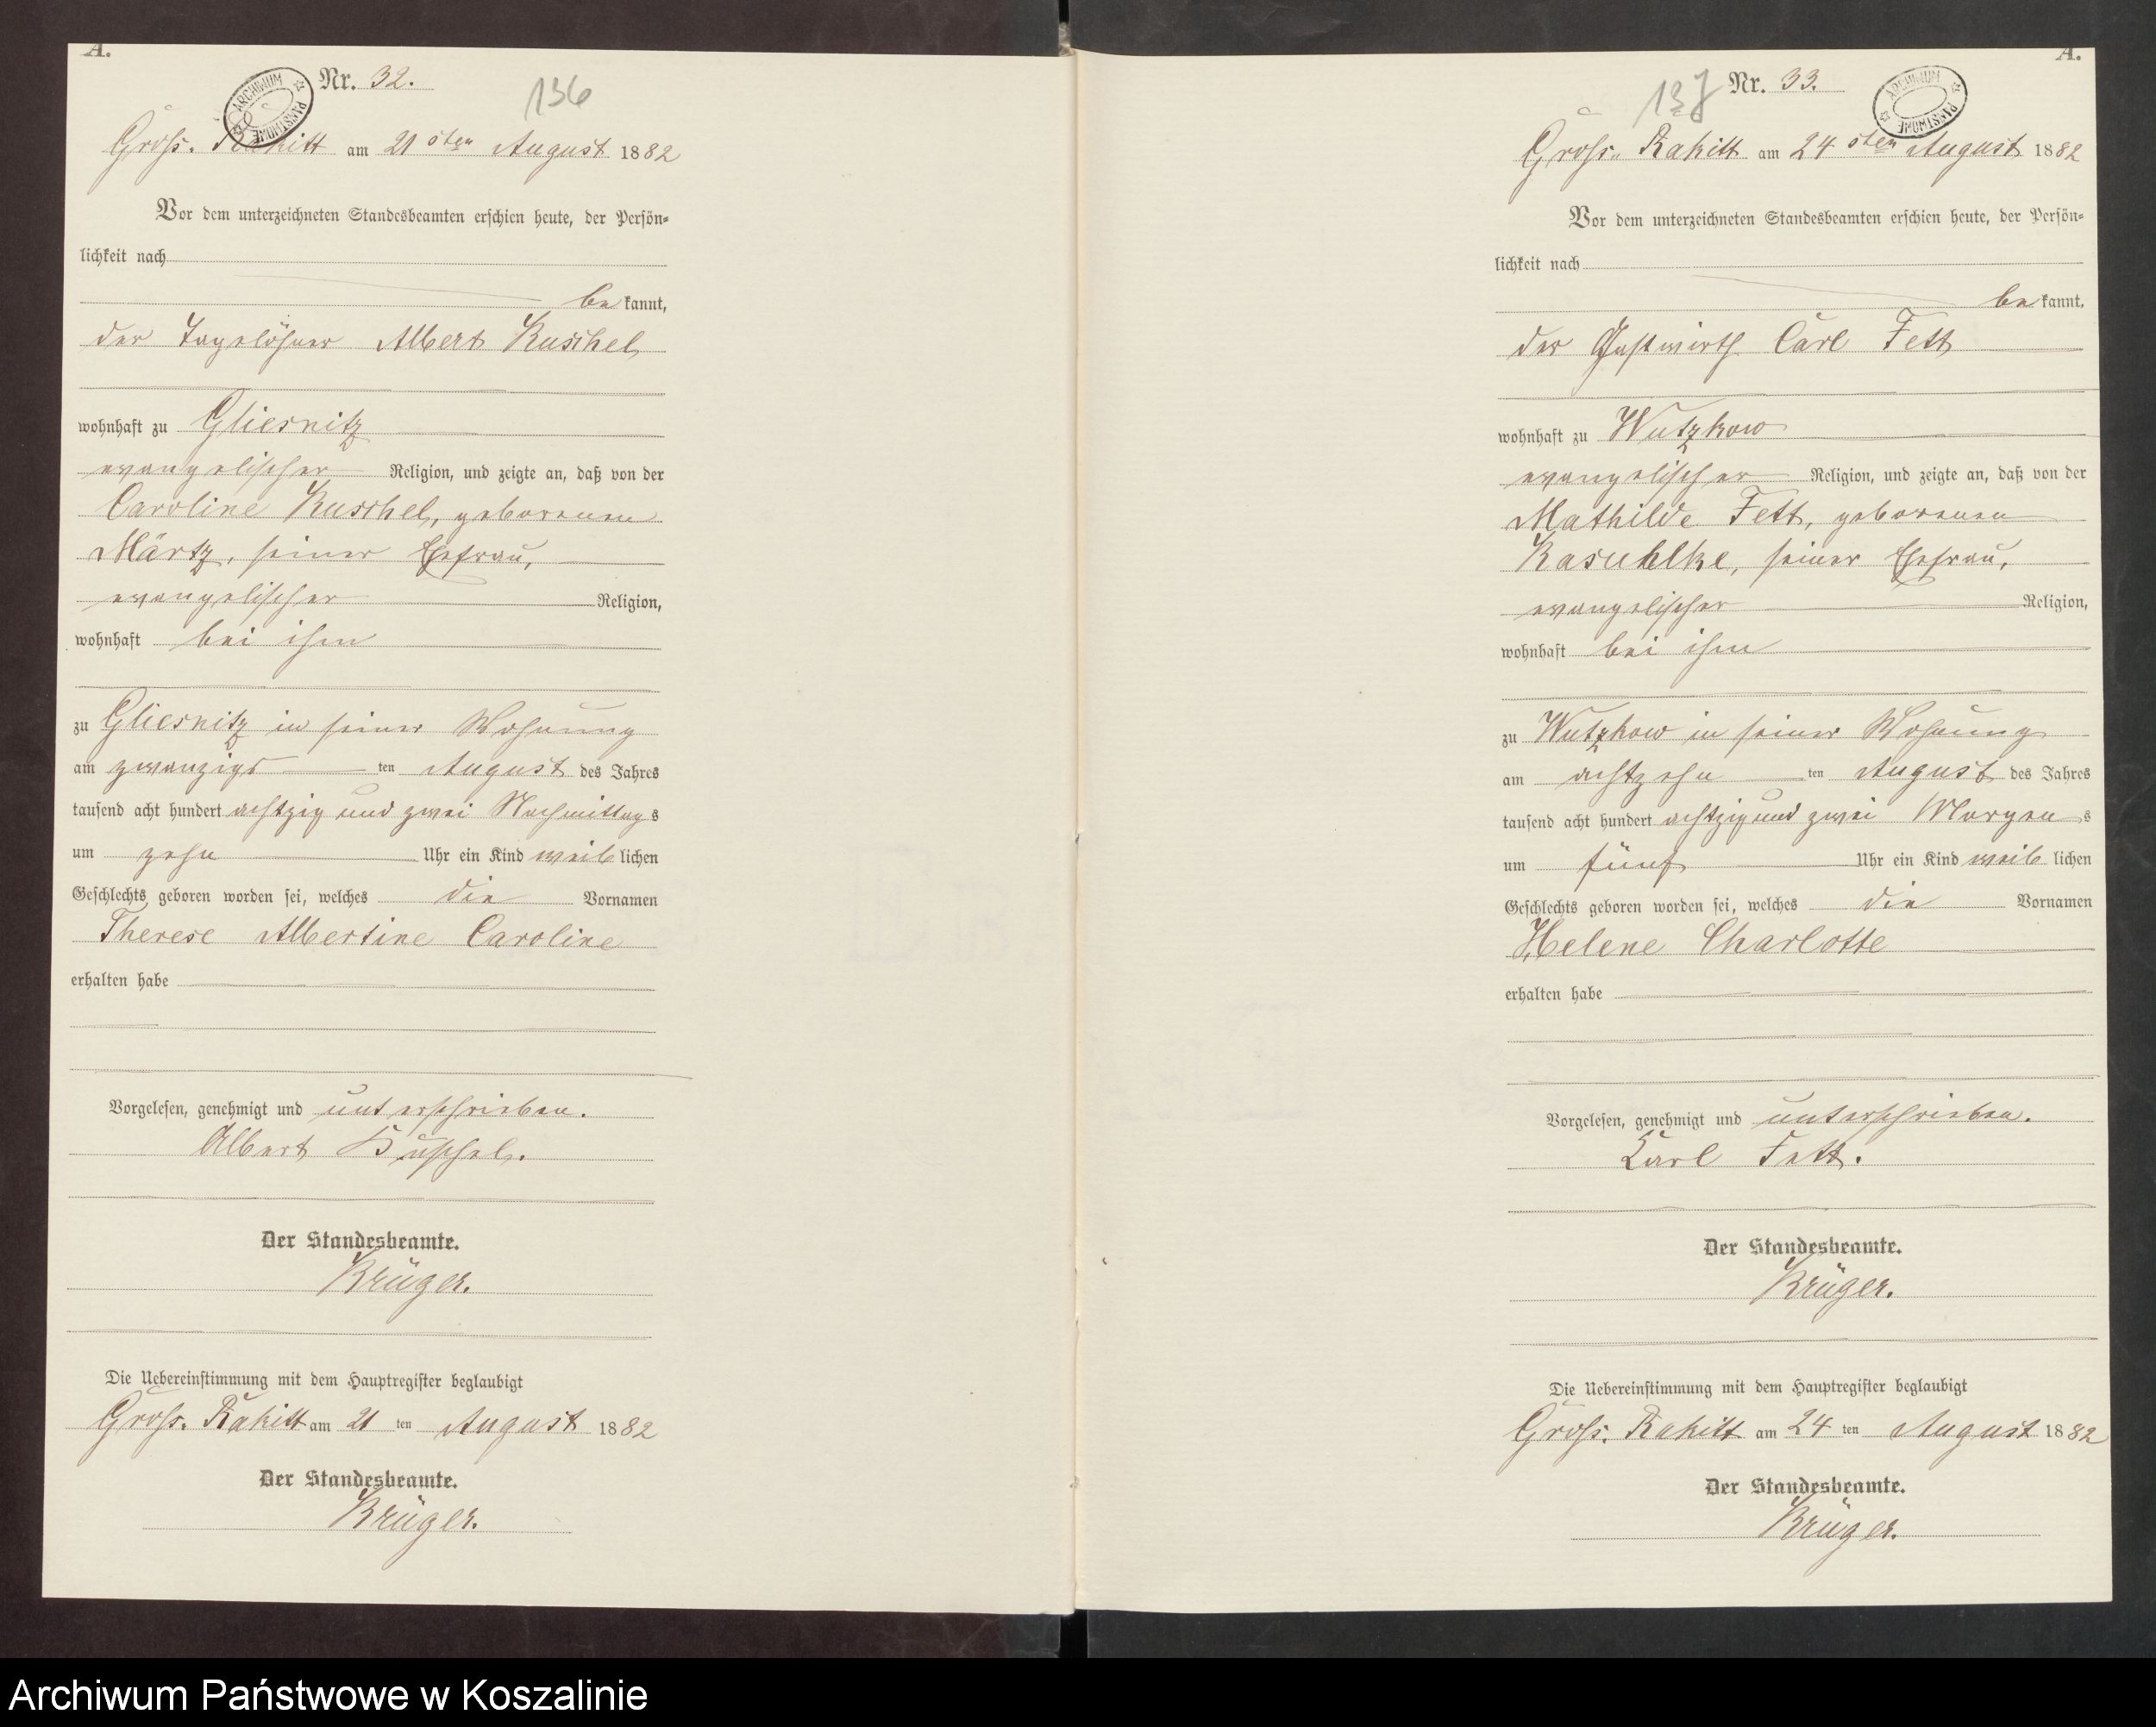 A.
Nr. 32.
136
ARCHIWUM PAŃSTWOWE
Groß. Rakitt am 21 sten August 1882
Vor dem unterzeichneten Standesbeamten erschien heute, der Persön-
lichkeit nach
be kannt,
der Tagelöhner Albert Kuschel
wohnhaft zu Gliesnitz
evangelischer Religion, und zeigte an, daß von der
Caroline Kuschel, geborenen
Märtz, seiner Ehefrau,
evangelischer Religion,
wohnhaft bei ihm
zu Gliesnitz in seiner Wohnung
am zwanzigs ten August des Jahres
tausend acht hundert achtzig und zwei Nachmittag s
um zehn Uhr ein Kind weib lichen
Geschlechts geboren worden sei, welches die Vornamen
Therese Albertine Caroline
erhalten habe
Vorgelesen, genehmigt und unterschrieben.
Albert Kuschel.
Der Standesbeamte.
Krüger.
Die Uebereinstimmung mit dem Hauptregister beglaubigt
Groß. Rakitt am 21 ten August 1882
Der Standesbeamte.
Krüger.
A.
137
Nr. 33.
ARCHIWUM PAŃSTWOWE
Groß. Rakitt am 24 sten August 1882
Vor dem unterzeichneten Standesbeamten erschien heute, der Persön-
lichkeit nach
be kannt,
der Gastwirth Carl Fett
wohnhaft zu Wutzkow
evangelischer Religion, und zeigte an, daß von der
Mathilde Fett, geborenen
Kasuhlke, seiner Ehefrau,
evangelischer Religion,
wohnhaft bei ihm
zu Wutzkow in seiner Wohnung
am achtzehn ten August des Jahres
tausend acht hundert achtzig und zwei Morgen s
um fünf Uhr ein Kind weib lichen
Geschlechts geboren worden sei, welches die Vornamen
Helene Charlotte
erhalten habe
Vorgelesen, genehmigt und unterschrieben.
Carl Fett.
Der Standesbeamte.
Krüger.
Die Uebereinstimmung mit dem Hauptregister beglaubigt
Groß. Rakitt am 24 ten August 1882
Der Standesbeamte.
Krüger.
Archiwum Państwowe w Koszalinie